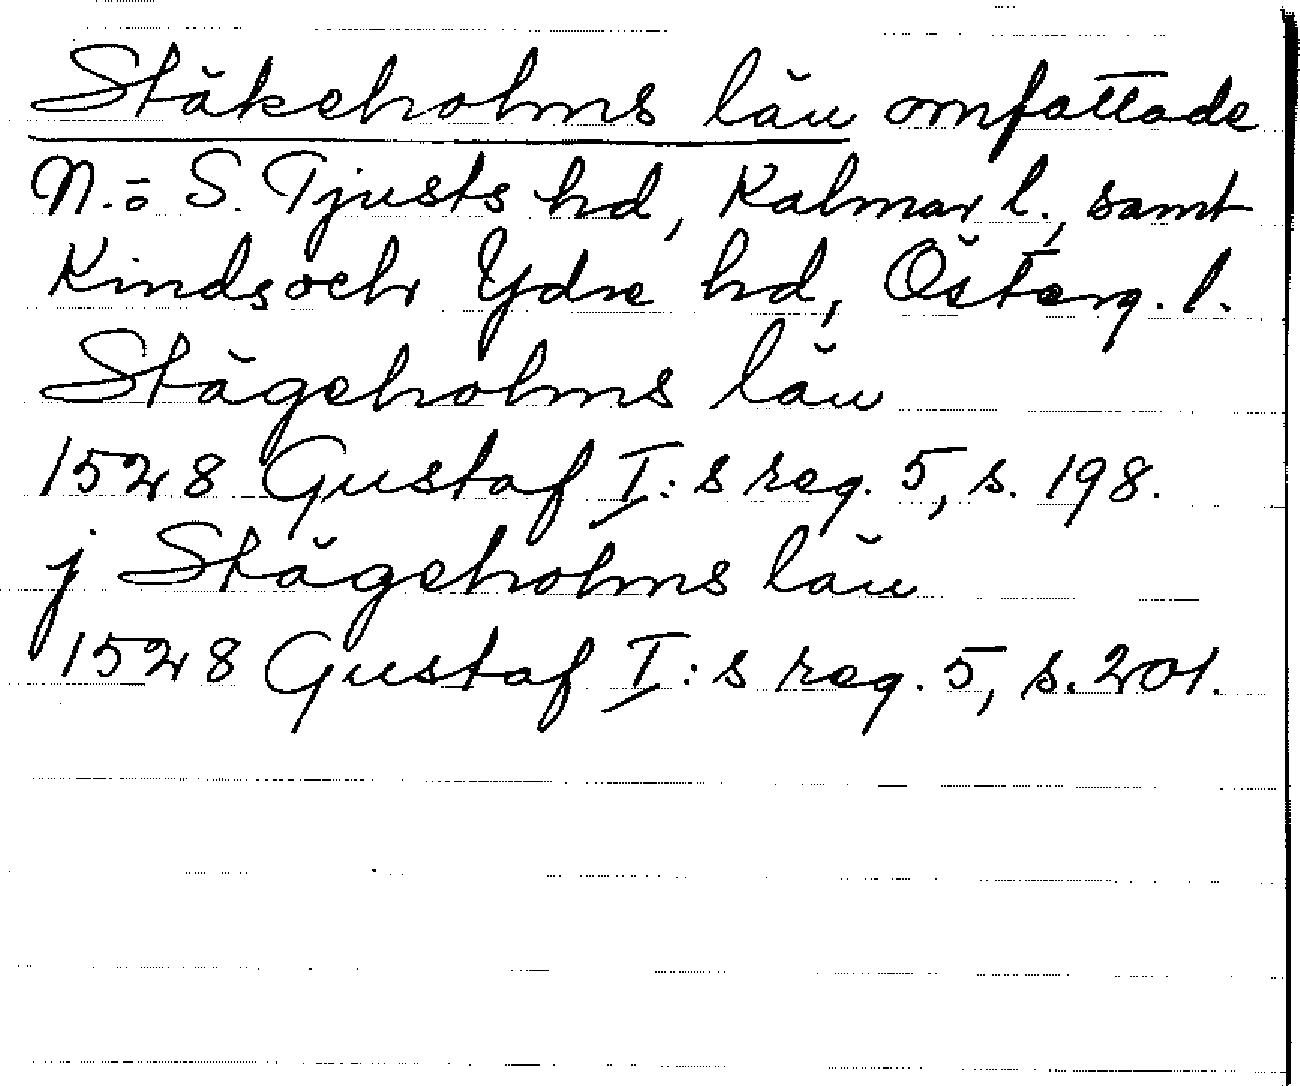 Stäkeholms län omfattade
N. o S. Tjusts hd, Kalmar l., samt
Kinds och Ydre hd, Österg. l.
Stägeholms län
1528 Gustaf I:s reg. 5, s. 198.
j Stägeholms län
1528 Gustaf I:s reg. 5, s. 201.